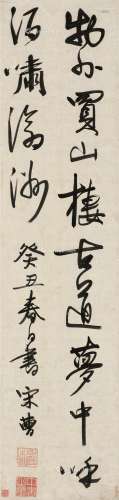 物外買山棲古道夢中呼
酒嘯滄洲
癸丑春日書 宋曹